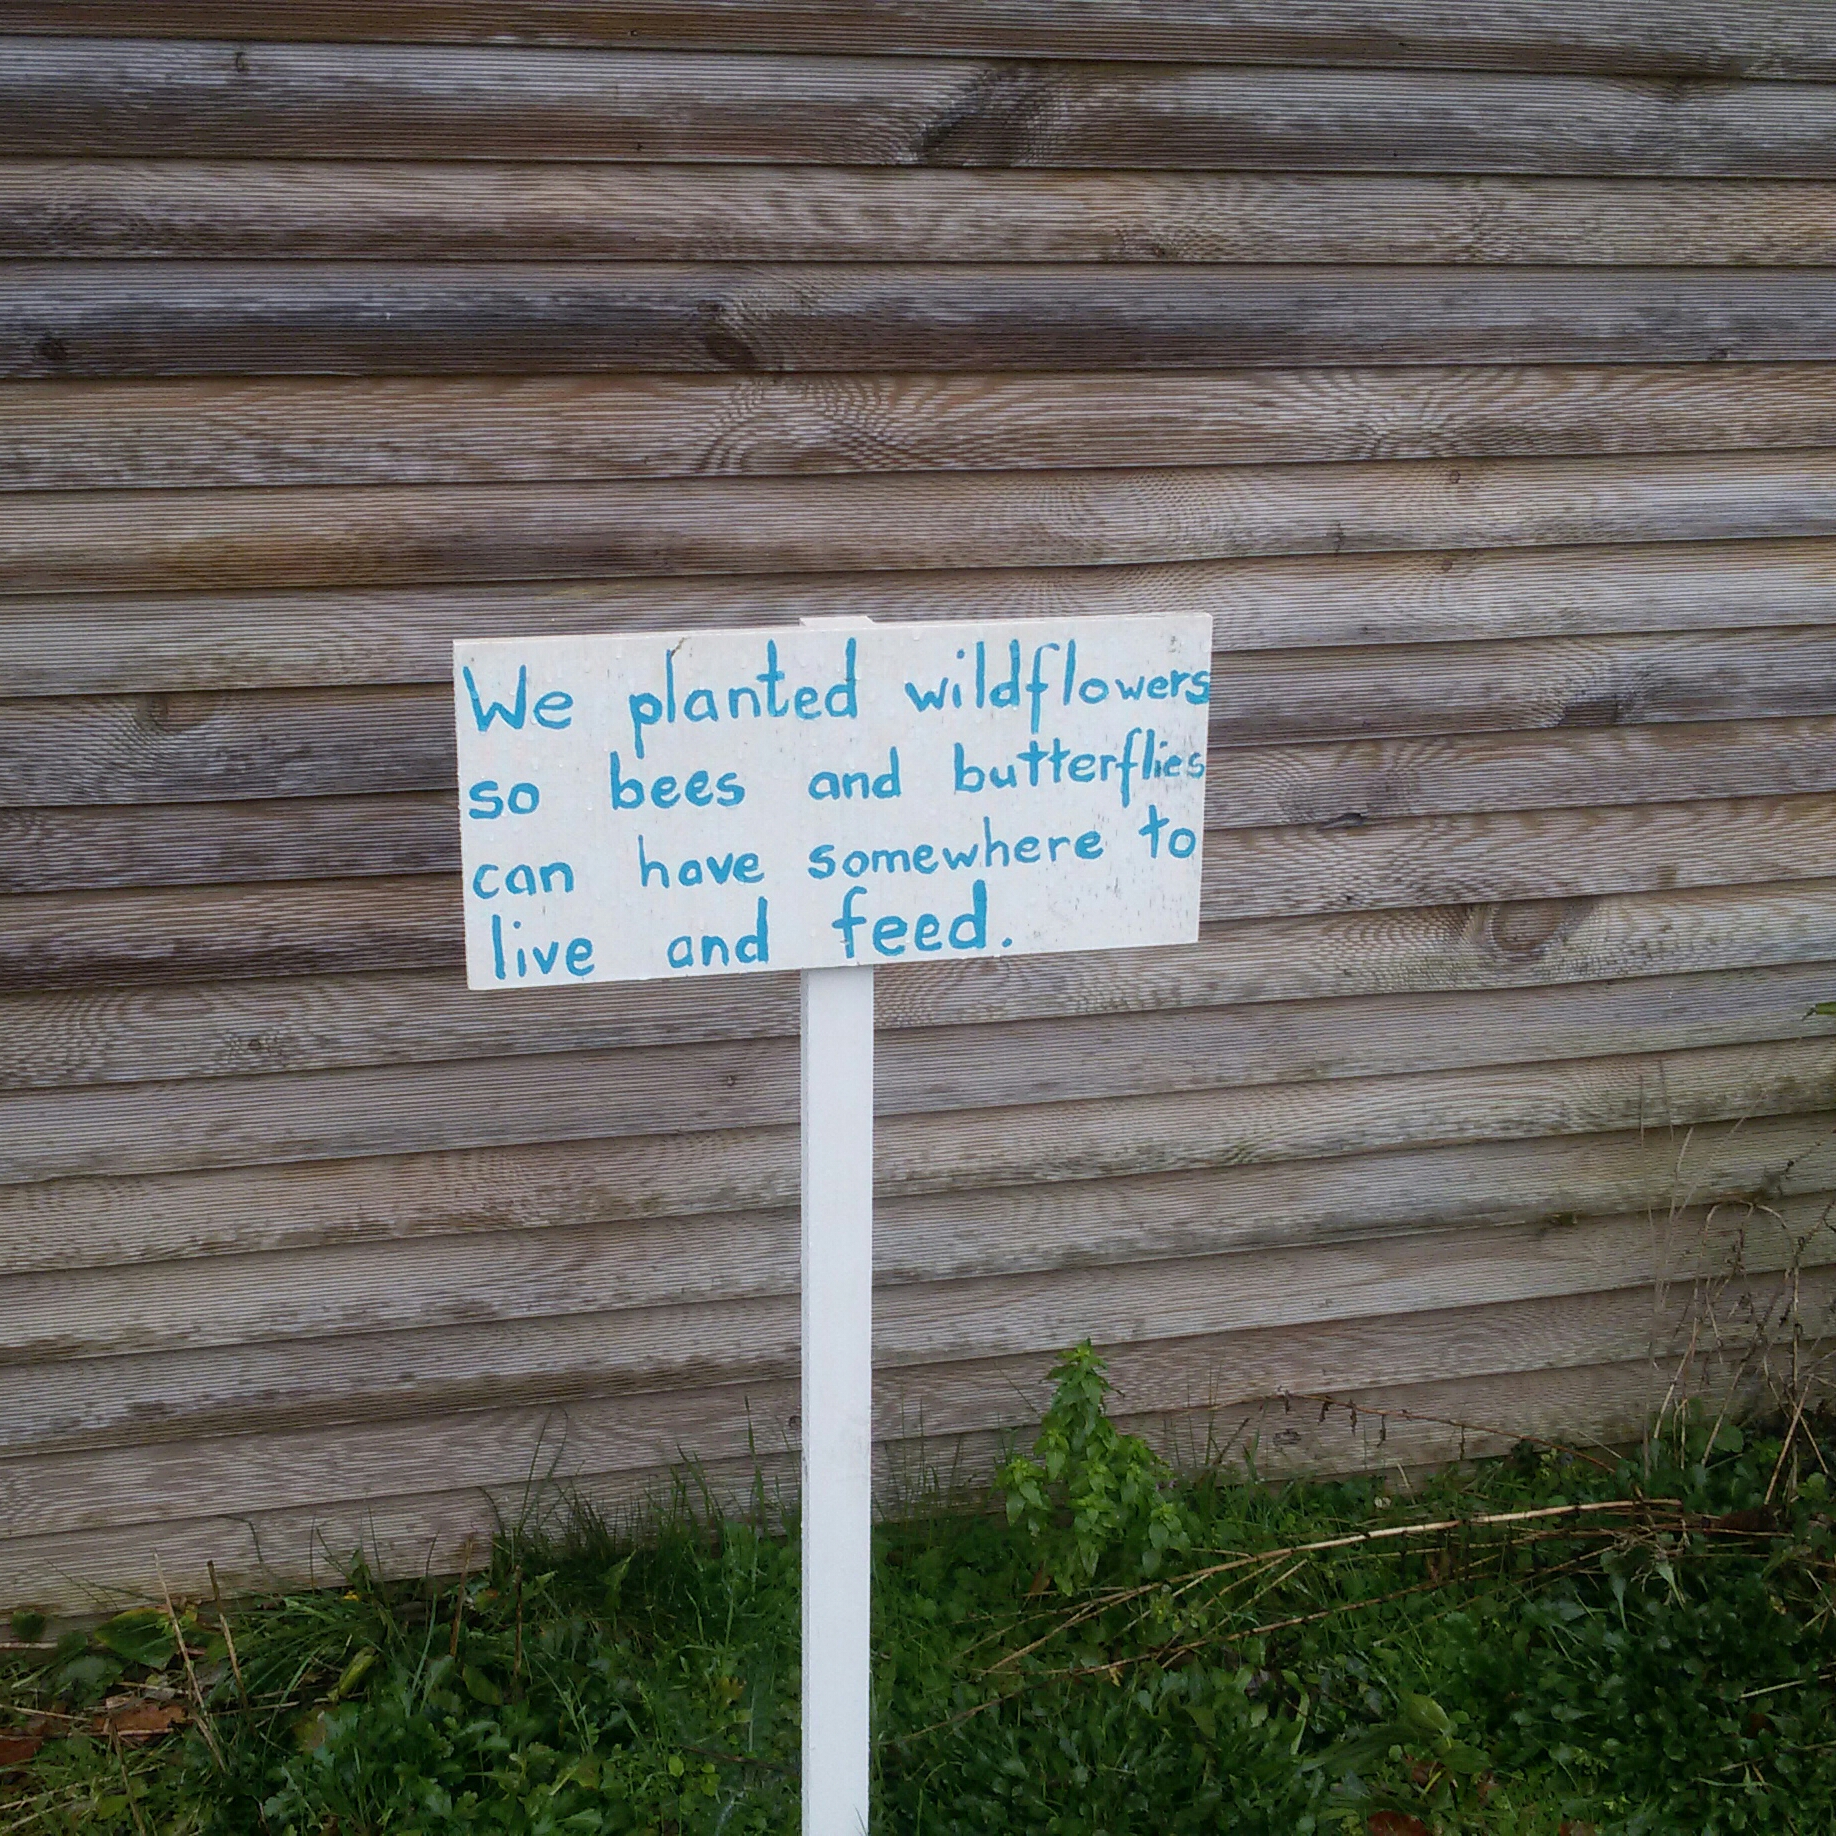 We planted wildflowers
so bees and butterflies
can have somewhere to
live and feed.